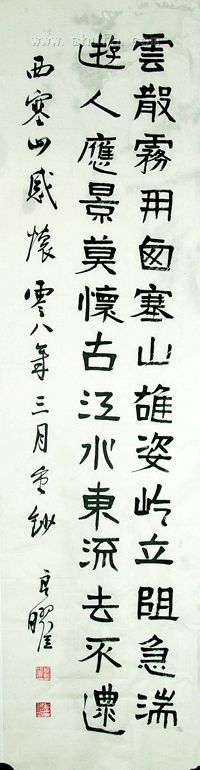 雲散霧開西塞山雄姿屹立阻急湍
遊人應景莫懷古江水東流去不還
西塞山感懷 零八年三月重鈔